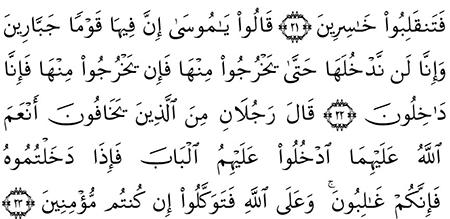 فَتَنقَلِبُوا۟ خَـٰسِرِينَ ﴿٢١﴾ قَالُوا۟ يَـٰمُوسَىٰٓ إِنَّ فِيهَا قَوْمًا جَبَّارِينَ
وَإِنَّا لَن نَّدْخُلَهَا حَتَّىٰ يَخْرُجُوا۟ مِنْهَا فَإِن يَخْرُجُوا۟ مِنْهَا فَإِنَّا
دَٰخِلُونَ ﴿٢٢﴾ قَالَ رَجُلَانِ مِنَ ٱلَّذِينَ يَخَافُونَ أَنْعَمَ
ٱللَّهُ عَلَيْهِمَا ٱدْخُلُوا۟ عَلَيْهِمُ ٱلْبَابَ فَإِذَا دَخَلْتُمُوهُ
فَإِنَّكُمْ غَـٰلِبُونَ ۚ وَعَلَى ٱللَّهِ فَتَوَكَّلُوٓا۟ إِن كُنتُم مُّؤْمِنِينَ ﴿٢٣﴾